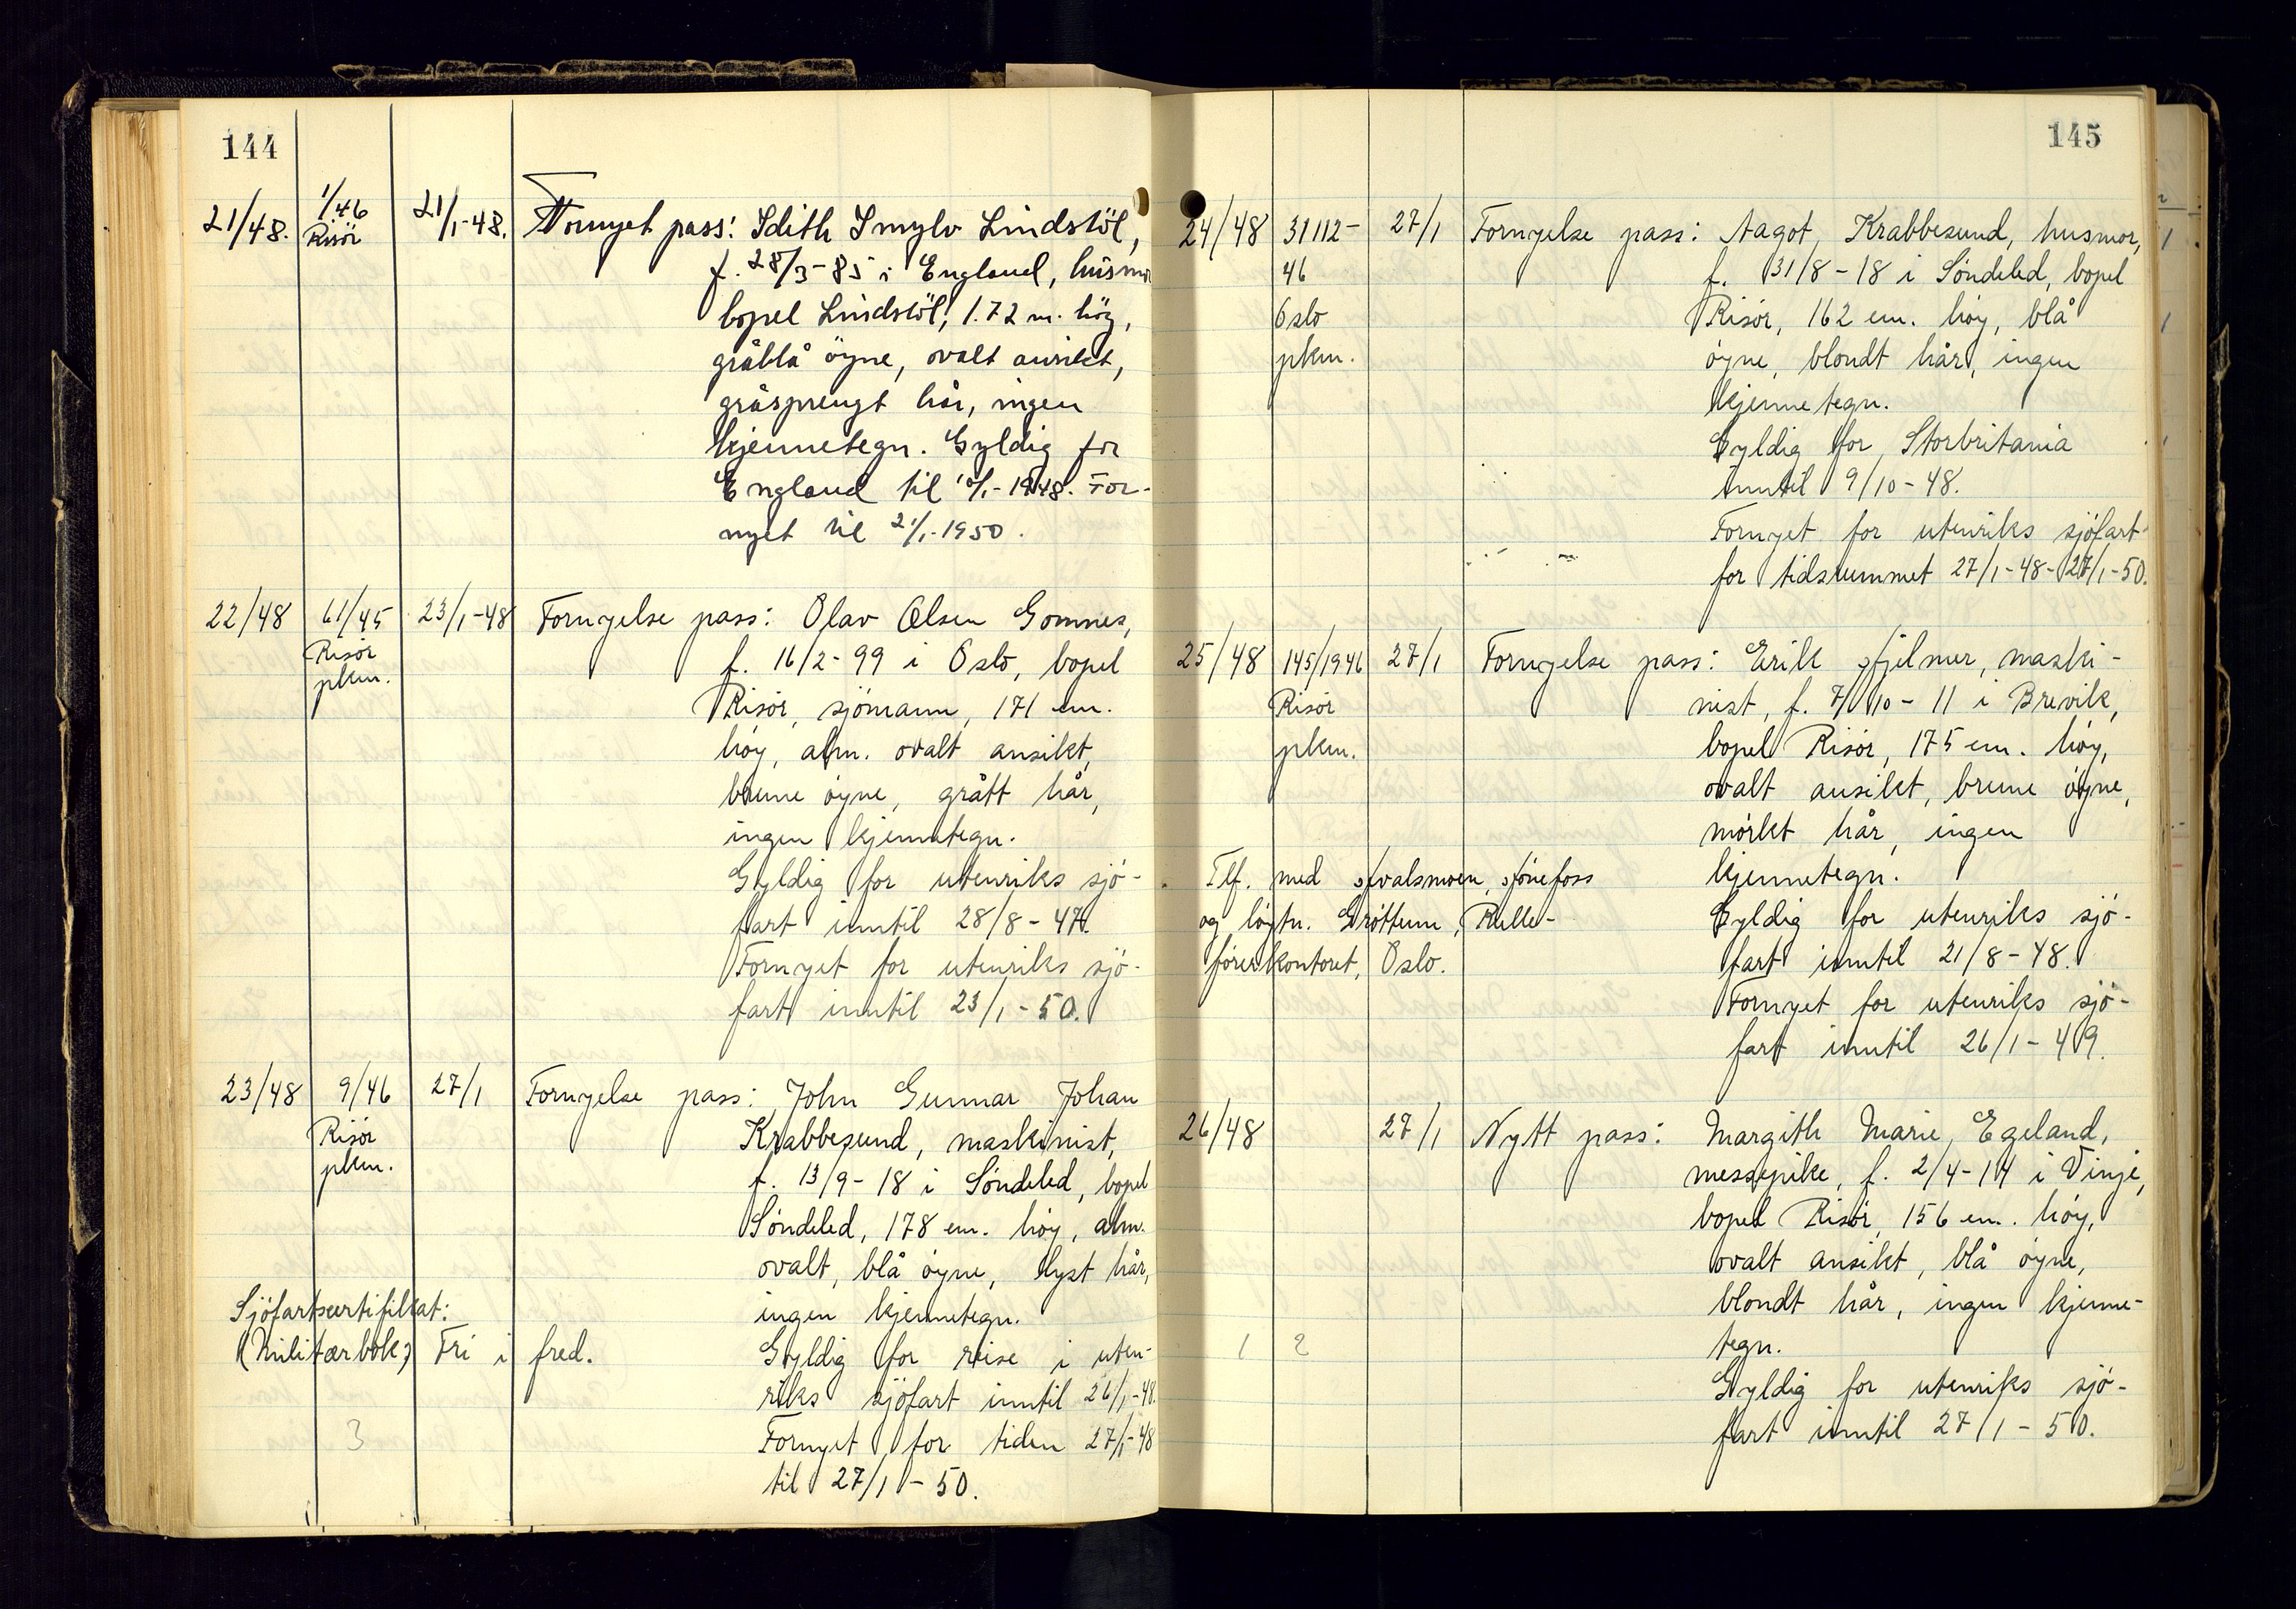 144
21/48. 1/46 Risör 21/1-48. Fornyet pass: Idith Lindstöl,
f. 28/3-85 i England, husmor
bopel Lindstöl, 1.72 m. hög,
gråblå öyne, ovalt ansikt,
gråsprengt hår, ingen
kjennetegn. Gyldig for
England til 1948. For-
nyet til 21/1-1950.
22/48 61/45 Risör pkm. 23/1-48 Fornyelse pass: Olav Olsen Gomnes,
f. 16/2-99 i Oslo, bopel
Risör, sjömann, 171 cm.
höy, alm. ovalt ansikt,
brune öyne, grått hår,
ingen kjennetegn.
Gyldig for utenriks sjö-
fart inntil 28/8-47.
Fornyet for utenriks sjö-
fart inntil 23/1-50.
23/48 9/46 Risör pkm. 27/1 Fornyelse pass: John Gunnar Johan
Krabbesund, maskinist,
f. 13/9-18 i Söndeled, bopel
Söndeled, 178 cm. höy, alm.
ovalt, blå öyne, lyst hår,
ingen kjennetegn.
Sjöfartssertifikat:
(Militærbok) Fri i fred.
Gyldig for reise i uten-
riks sjöfart inntil 26/1-48.
Fornyet for tiden 27/1-48
til 27/1-50.
3
145
24/48 31112-46 Oslo pkm. 27/1 Fornyelse pass: Aagot Krabbesund, husmor,
f. 31/8-18 i Söndeled, bopel
Risör, 162 cm. höy, blå
öyne, blondt hår, ingen
kjennetegn.
Gyldig for Storbritania
inntil 9/10-48.
Fornyet for utenriks sjöfart
for tidsrummet 27/1-48-27/1-50.
25/48 145/1946 Risör pkm. 27/1 Fornyelse pass: Erik Hjelmer, maski-
nist, f. 7/10-11 i Brevik,
bopel Risör, 175 cm. höy,
ovalt ansikt, brune öyne,
mörkt hår, ingen
kjennetegn.
Tlf. med Hvalsmoen, Hönefoss
og löytn. Gröttum, Rulle-
förerkontoret, Oslo.
Gyldig for utenriks sjö-
fart inntil 21/8-48.
Fornyet for utenriks sjö-
fart inntil 26/1-49.
26/48 27/1 Nytt pass: Margith Marie Egeland,
messepike, f. 2/4-14 i Vinje,
bopel Risör, 156 cm. höy,
ovalt ansikt, blå öyne,
blondt hår, ingen kjenne-
tegn.
1 2
Gyldig for utenriks sjö-
fart inntil 27/1-50.